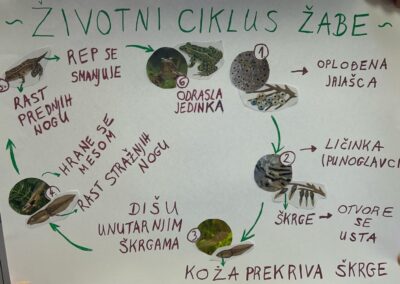 ~ ŽIVOTNI CIKLUS ŽABE ~
1
OPLOĐENA
JAJAŠCA
2
LIČINKA
(PUNOGLAVCI
ŠKRGE
OTVORE
SE
USTA
3
KOŽA PREKRIVA ŠKRGE
DIŠU
UNUTARNJIM
ŠKRGAMA
4
HRANE SE
MESOM
RAST STRAŽNJIH
NOGU
5
RAST
PREDNJIH
NOGU
REP SE
SMANJUJE
6
ODRASLA
JEDINKA